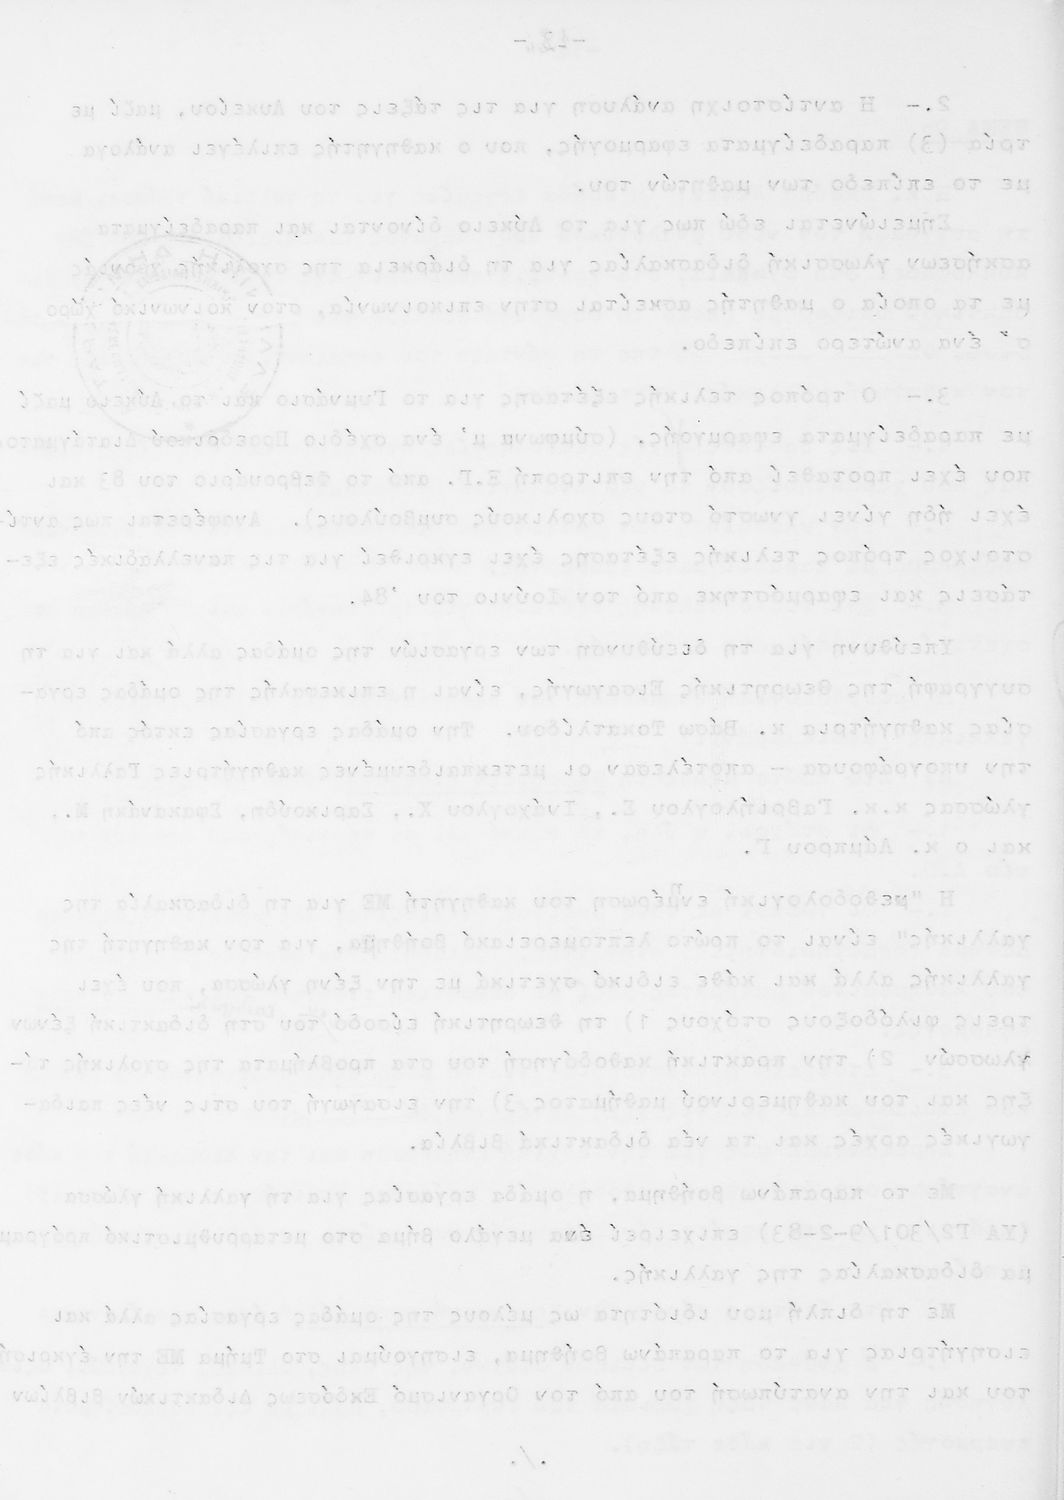 -2-
2.- Η αντίστοιχη ανάλυση για τις τάξεις του Λυκείου, μαζί με
τρία (3) παραδείγματα εφαρμογής, που ο καθηγητής επιλέγει ανάλογα
με το επίπεδο των μαθητών του.
Σημειώνεται εδώ πως για το Λύκειο δίνονται και παραδείγματα
ασκήσεων γλωσσική διδασκαλίας για τη διάρκεια της σχολικής χρονιάς
με τα οποία ο μαθητής ασκείται στην επικοινωνία, στον κοινωνικό χώρο
σ' ένα ανώτερο επίπεδο.
3.- Ο τρόπος τελικής εξέτασης για το Γυμνάσιο και το Λύκειο μαζί
με παραδείγματα εφαρμογής. (σύμφωνα μ' ένα σχέδιο Προεδρικού Διατάγματος
που έχει προταθεί από την επιτροπή Ε.Γ. από το Φεβρουάριο του 83 και
έχει ήδη γίνει γνωστό στους σχολικούς συμβούλους). Αναφέρεται πως αντί-
στοιχος τρόπος τελικής εξέτασης έχει εγκριθεί για τις πανελλαδικές εξε-
τάσεις και εφαρμόστηκε από τον Ιούνιο του '84.
Υπεύθυνη για τη διεύθυνση των εργασιών της ομάδας αλλά και για τη
συγγραφή της Θεωρητικής Εισαγωγής, είναι η επικεφαλής της ομάδας εργα-
σίας καθηγήτρια κ. Βάσω Τοκατλίδου. Την ομάδας εργασίας εκτός από
την υπογράφουσα - αποτέλεσαν οι μετεκπαιδευμένες καθηγήτριες Γαλλικής
γλώσσας κ.κ. Γαβριήλογλου Σ., Ινάχογλου Χ., Σαρικούδη, Σφακανάκη Μ.,
και ο κ. Λάμπρου Γ.
Η "μεθοδολογική ενημέρωση του καθηγητή ΜΕ για τη διδασκαλία της
γαλλικής" είναι το πρώτο λεπτομερειακό βοήθημα, για τον καθηγητή της
γαλλικής αλλά και κάθε ειδικό σχετικά με την ξένη γλώσσα, που έχει
τρεις φιλόδοξους στόχους 1) τη θεωρητική είσοδό του στη διδακτική ξένων
γλωσσών 2) την πρακτική καθοδόγησή του στα προβλήματα της σχολικής τά-
ξης και του καθημερινού μαθήματος 3) την εισαγωγή του στις νέες παιδα-
γωγικές αρχές και τα νέα διδακτικά βιβλία.
Με το παραπάνω βοήθημα, η ομάδα εργασίας για τη γαλλική γλώσσα
(ΥΑ Γ2/301/9-2-83) επιχειρεί ένα μεγάλο βήμα στο μεταρρυθμιστικό πρόγραμ
μα διδασκαλίας της γαλλικής.
Με τη διπλή μου ιδιότητα ως μέλους της ομάδας εργασίας αλλά και
εισηγήτριας για το παραπάνω βοήθημα, εισηγούμαι στο Τμήμα ΜΕ την έγκρισή
του και την ανατύπωσή του από τον Οργανισμό Εκδόσεως Διδακτικών βιβλίων
./.